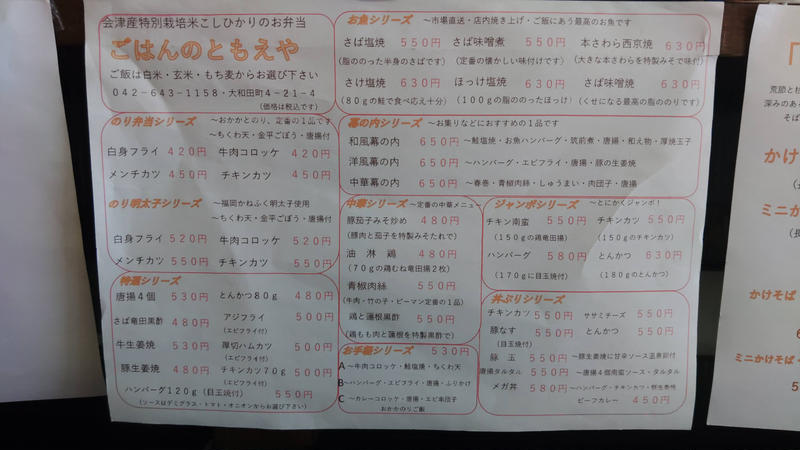 会津産特別栽培米こしひかりのお弁当
ごはんのともえや
ご飯は白米・玄米・もち麦からお選び下さい
042-643-1158・大和田町4-21-4
(価格は税込です)
のり弁当シリーズ ～おかかとのり、定番の1品です
～ちくわ天・金平ごぼう・唐揚付
白身フライ 420円 牛肉コロッケ 420円
メンチカツ 450円 チキンカツ 450円
のり明太子シリーズ ～福岡かねふく明太子使用
～ちくわ天・金平ごぼう・唐揚付
白身フライ 520円 牛肉コロッケ 520円
メンチカツ 550円 チキンカツ 550円
特選シリーズ
唐揚4個 530円 とんかつ80g 480円
さば竜田黒酢 480円 アジフライ 500円
(エビフライ付)
牛生姜焼 530円 厚切ハムカツ 500円
(エビフライ付)
豚生姜焼 480円 チキンカツ70g 500円
(エビフライ付)
ハンバーグ120g(目玉焼付) 550円
(ソースはデミグラス・トマト・オニオンからお選び下さい)
お魚シリーズ ～市場直送・店内焼き上げ・ご飯にあう最高のお魚です
さば塩焼 550円 さば味噌煮 550円 本さわら西京焼 630円
(脂ののった半身のさばです) (定番の懐かしい味付けです) (大きな本さわらを特製みそで味付)
さけ塩焼 630円 ほっけ塩焼 630円 さば味噌焼 630円
(80gの鮭で食べ応え十分) (100gの脂ののったほっけ) (くせになる最高の脂ののりです)
幕の内シリーズ ～お集りなどにおすすめの1品です
和風幕の内 650円 ～鮭塩焼・お魚ハンバーグ・筑前煮・唐揚・和え物・厚焼玉子
洋風幕の内 650円 ～ハンバーグ・エビフライ・唐揚・豚の生姜焼
中華幕の内 650円 ～春巻・青椒肉糸・しゅうまい・肉団子・唐揚
中華シリーズ ～定番の中華メニュー
豚茄子みそ炒め 480円
(豚肉と茄子を特製みそたれで)
油淋鶏 480円
(70gの鶏むね竜田揚2枚)
青椒肉絲 550円
(牛肉・竹の子・ピーマン定番の1品)
鶏と蓮根黒酢 550円
(鶏もも肉と蓮根を特製黒酢で)
お手軽シリーズ 530円
A～牛肉コロッケ・鮭塩焼・ちくわ天
B～ハンバーグ・エビフライ・唐揚・ふりかけ
C～カレーコロッケ・唐揚・エビ串団子
おかかのりご飯
ジャンボシリーズ ～とにかくジャンボ!
チキン南蛮 550円 チキンカツ 550円
(150gの鶏竜田揚) (150gのチキンカツ)
ハンバーグ 580円 とんかつ 630円
(170gに目玉焼付) (180gのとんかつ)
丼ぶりシリーズ
チキンカツ 550円 ササミチーズ 550円
豚なす 550円 とんかつ 550円
(目玉焼付)
豚玉 550円 ～豚生姜焼に甘辛ソース温泉卵付
唐揚タルタル 550円 ～唐揚4個南蛮ソース・タルタル
メガ丼 580円 ～ハンバーグ・チキンカツ・豚生姜焼
ビーフカレー 450円
荒節と
深みのあ
そば
かけ
ミニか
かけそば
ミニかけそば・
5